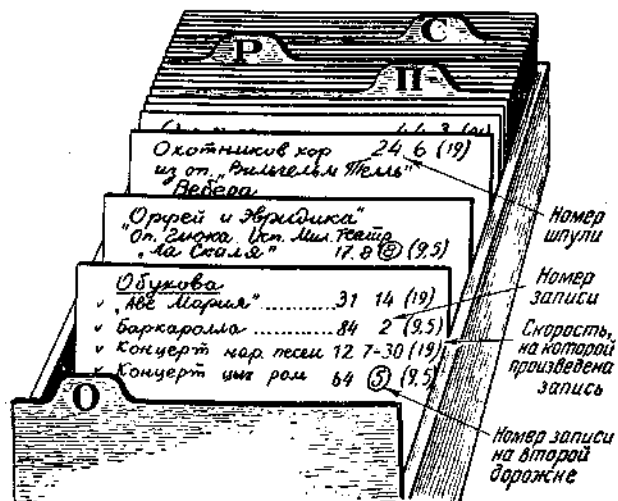 С
Р
П
Охотников хор 24 6 (19)
из оп. „Вильгельм Телль"
Вебера
„Орфей и Эвридика"
Оп. Глюка Исп. Мил. Театр
„Ла Скаля" 17 8 (8) (9,5)
Обухова
v „Аве Мария" ........ 31 14 (19)
v Баркаролла .......... 84 2 (9.5)
v Концерт нар. песен 12 7-30 (19)
v Концерт цыг ром 64 (5) (9,5)
О
Номер
шпули
Номер
записи
Скорость,
на которой
произведена
запись
Номер записи
на второй
дорожке